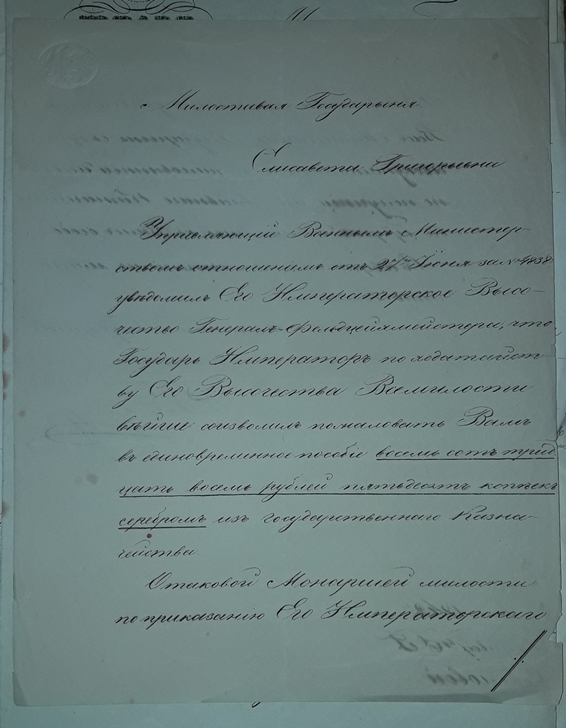 Милостивая Государыня
Елисавета Григорьевна
Управляющій Военнымъ Министер-
ствомъ отношеніемъ отъ 27го Іюня за №
увѣдомилъ Его Императорское Высо-
чество Генералъ-Фельдцейхмейстера, что
Государь Императоръ по ходатайст
ву Его Высочества Всемилости
вѣйше соизволилъ пожаловать Вамъ
въ единовременное пособіе восемь сотъ трид
цать восемь рублей пятьдесятъ копѣекъ
серебромъ изъ Государственнаго Казна-
чейства
О таковой Монаршей милости
по приказанію Его Императорскаго